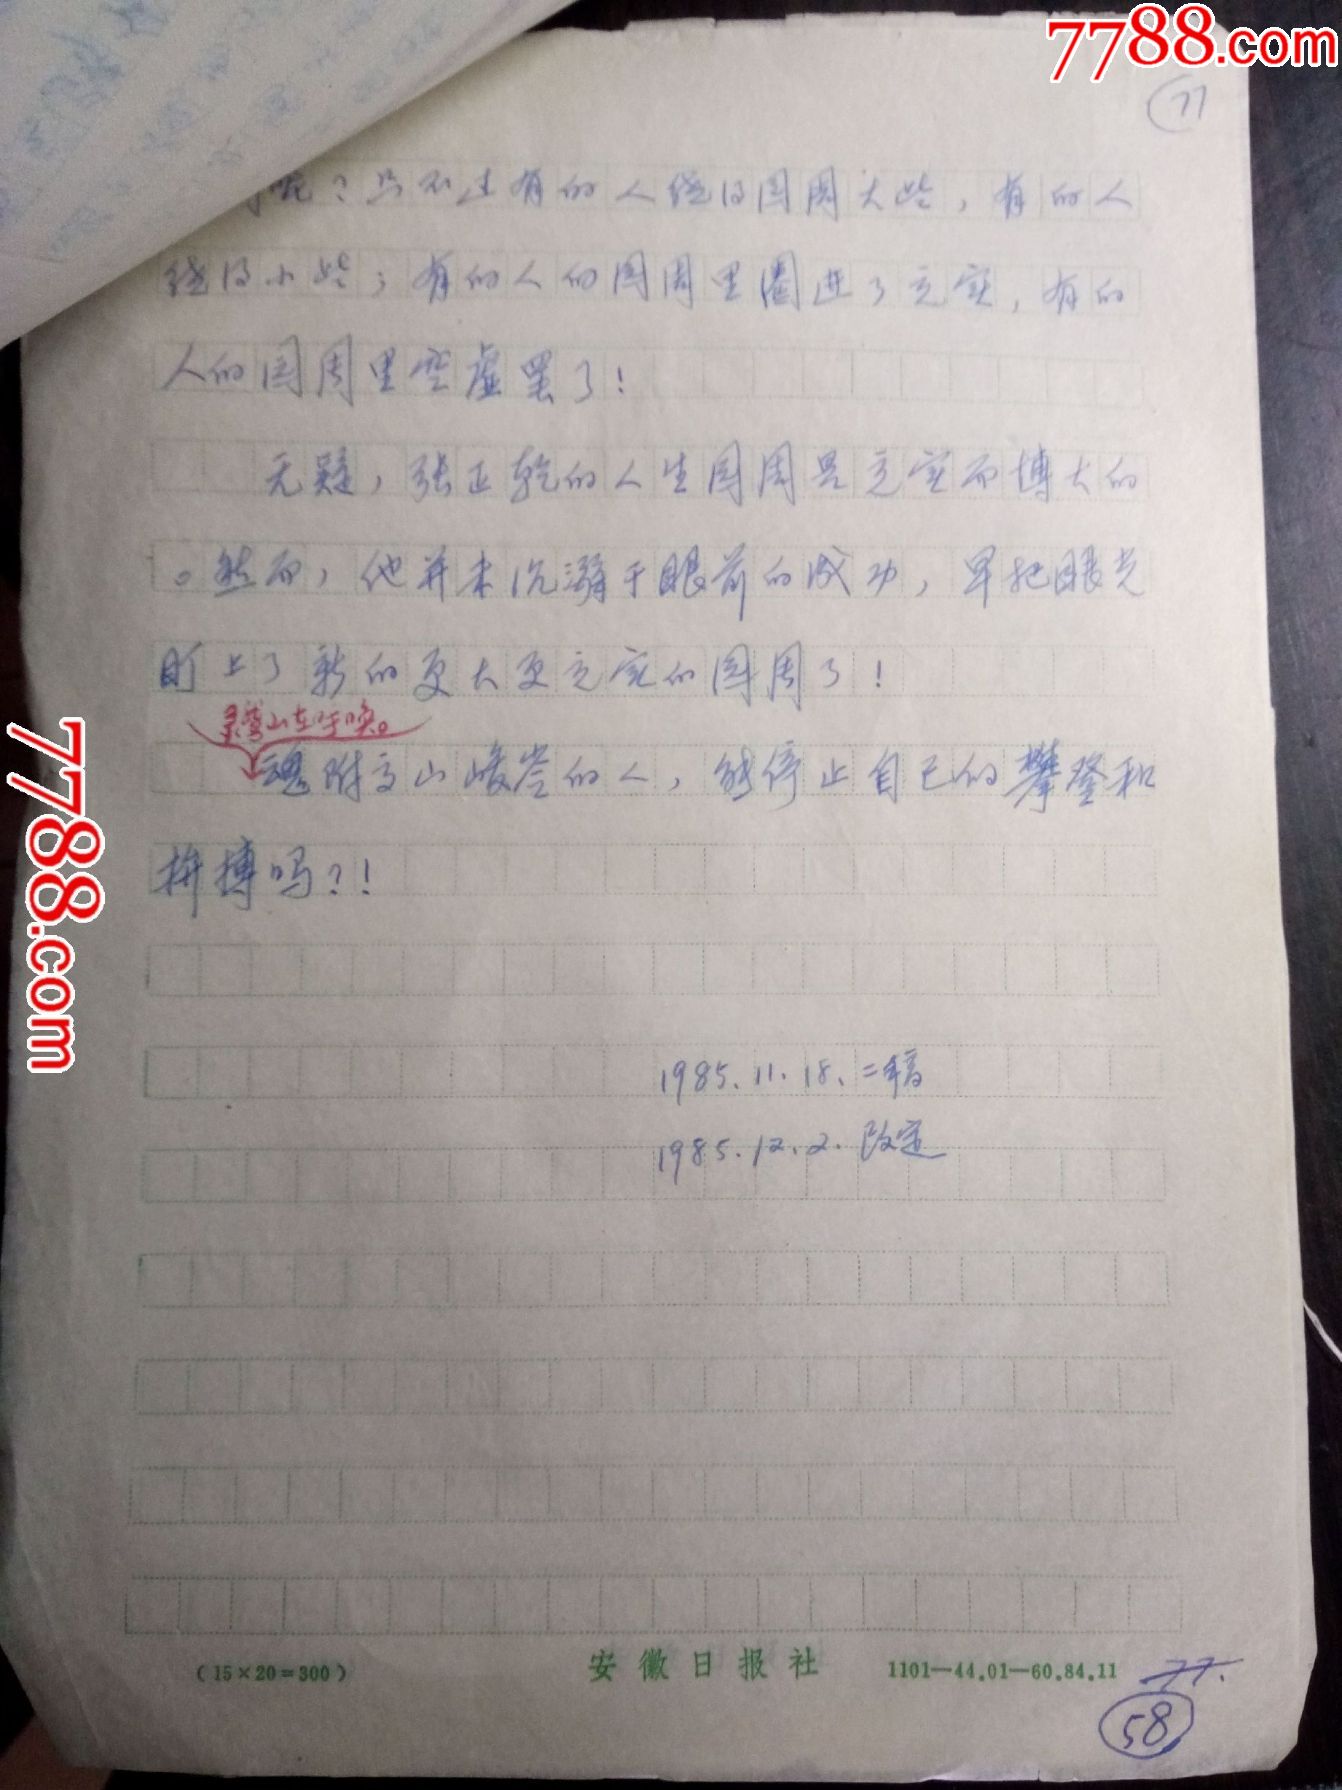 7788.com
77
呢？只不过有的人绕得圆周大些，有的人
绕得小些；有的人的圆周里圈进了充实，有的
人的圆周里空虚罢了！
无疑，张正乾的人生圆周是充实而博大的
。然而，他并未沉溺于眼前的成功，早把眼光
盯上了新的更大更充实的圆周了！
山在呼唤。
魂附高山峻岺的人，能停止自己的攀登和
拼搏吗？！
7788.com
1985.11.18.二稿
1985.12.2.改定
(15×20=300)
安徽日报社
1101—44.01—60.84.11
77.
58